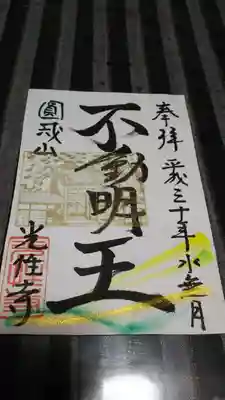 奉拝 平成三十年水無月
不動明王
圓戒山
光住寺